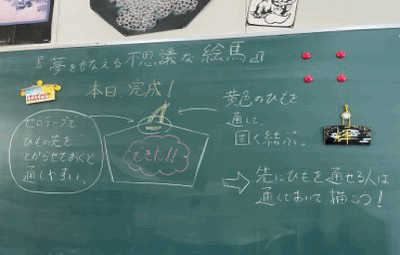 『夢をかなえる不思議な絵馬』
本日完成！
セロテープで
ひもの先を
とがらせておくと
通しやすい。
できた!!
黄色のひもを
通して、
固く結ぶ。
⇨先にひもを通せる人は
通しておいて描こう！